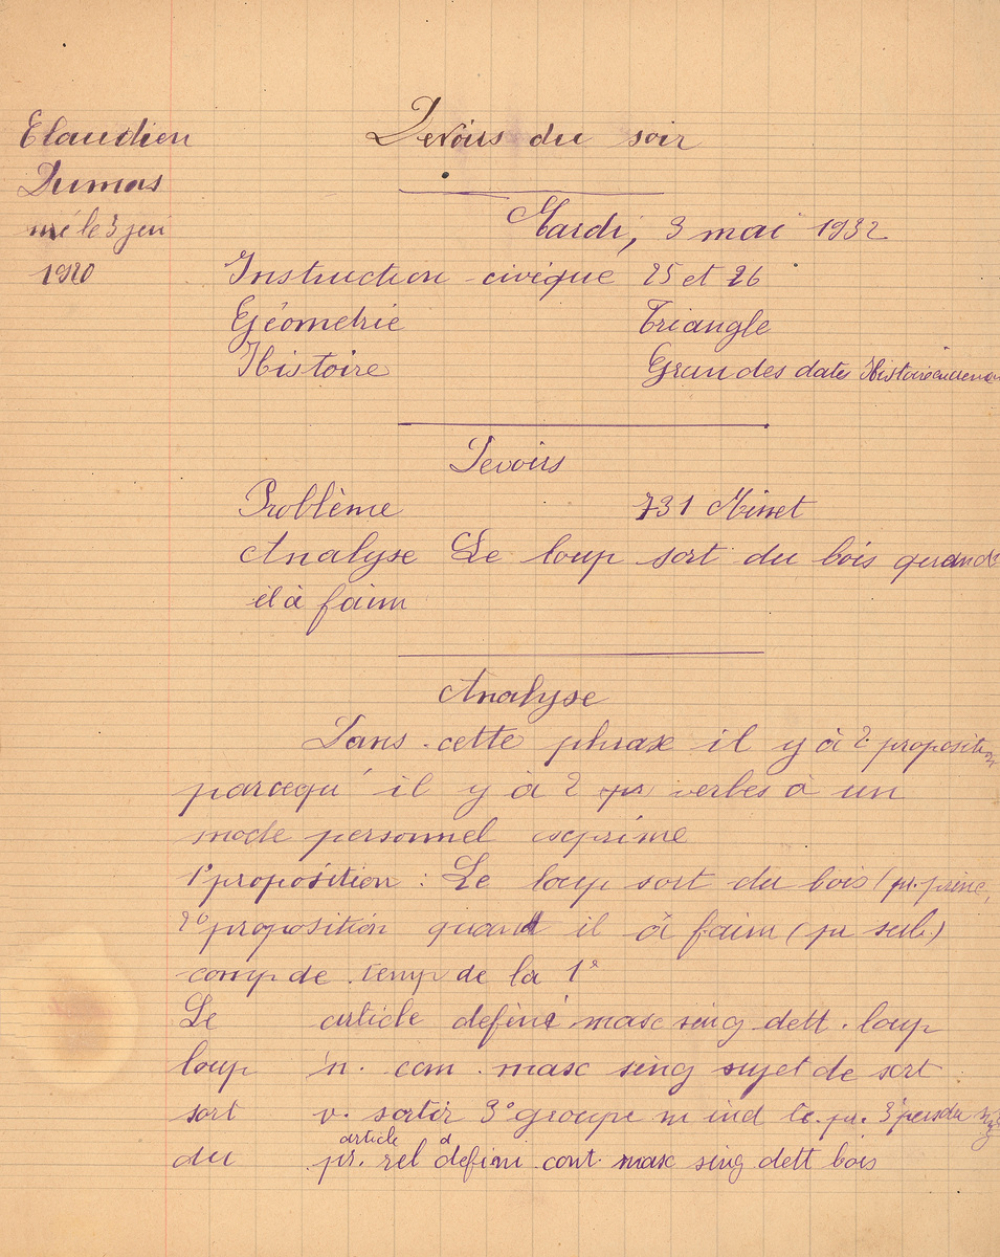 Claudien
Dumas
né le 3 jeu
1920
Devoirs du soir
Mardi, 3 mai 1932
Instruction civique 25 et 26
Géometrie Triangle
Histoire Grandes dates Histoire
Devoirs
Problème 731 Minet
Analyse Le loup sort du bois quand
il à faim
Analyse
Dans cette phrase il y à 2 proposition
parcequ' il y à 2 verbes à un
mode personnel exprime
1° proposition : Le loup sort du bois (pr. princ.
2° proposition quand il à faim (pr sub.)
comp de temp de la 1°
Le article défini masc sing dett. loup
loup n. com. masc sing sujet de sort
sort v. sortir 3° groupe m ind te. pr. 3° pers du sing
du pr. rel article défini cont. masc sing dett bois